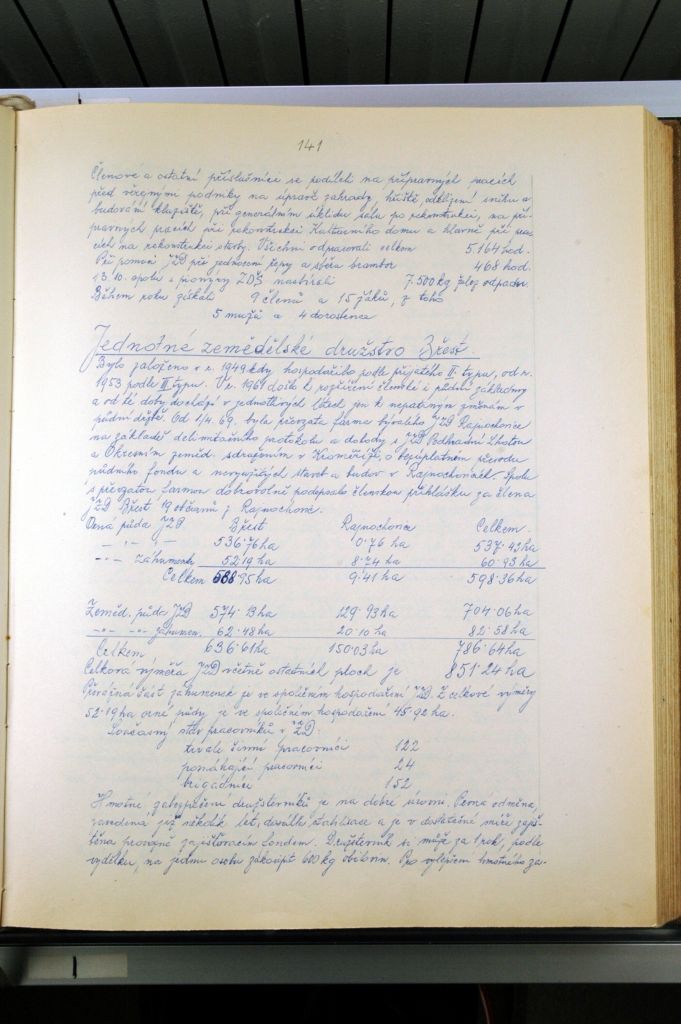 141
Členové a ostatní příslušníci se podíleli na přípravných pracích
před veřejnými podniky na úpravě zahrady, hřiště, odklízení sněhu a
budování kluziště, při generálním úklidu sálu po rekonstrukci, na pří-
pravných pracích při rekonstrukci Kulturního domu a hlavně při pra-
cích na rekonstrukci stavby. Všichni odpracovali celkem 5.164 hod.
Při pomoci JZD při jednocení řepy a sběru brambor 468 hod.
13.10. spolu s pionýry ZDŠ nasbírali 7.500 kg želez. odpadu.
Během roku získali 9 členů a 15 žáků, z toho
5 mužů a 4 dorostence
Jednotné zemědělské družstvo Břest.
Bylo založeno v r. 1949 kdy hospodařilo podle přijatého II. typu, od r.
1953 podle III typu. V r. 1961 došlo k rozšíření členské i půdní základny
a od té doby dochází v jednotlivých létech jen k nepatrným změnám v
půdní držbě. Od 1/4. 69. byla převzata farma bývalého JZD Rajnochovice
na základě delimitačního protokolu a dohody s JZD Podhradní Lhotou
a Okresním zeměd. sdružením v Kroměříži, o bezúplatném převodu
půdního fondu a nevyužitých staveb a budov v Rajnochovicích. Spolu
s převzatou farmou dobrovolně podepsalo členskou přihlášku za člena
JZD Břest 19 občanů z Rajnochovic.
Orná půda JZD Břest Rajnochovice Celkem.
-"- -"- 536.76 ha 0.76 ha 537.43 ha
-"- záhumenk. 52.19 ha 8.74 ha 60.93 ha
Celkem 588.95 ha 9.41 ha 598.36 ha
Zeměd. půda JZD 574.13 ha 129.93 ha 704.06 ha
-"- -"- záhumen. 62.48 ha 20.10 ha 82.58 ha
Celkem 636.61 ha 150.03 ha 786.64 ha
Celková výměra JZD včetně ostatních ploch je 851.24 ha
Převážná část záhumenek je ve společném hospodaření JZD. Z celkové výměry
52.19 ha orné půdy je ve společném hospodaření 45.92 ha.
Současný stav pracovníků v JZD:
trvale činní pracovníci 122
pomáhající pracovníci 24
brigádníci 152
Hmotné zabezpečení družstevníků je na dobré úrovni. Pevná odměna,
zavedená již několik let, dosáhla stabilisace a je v dostatečné míře zajiš-
těna provozně zajišťovacím fondem. Družstevník si může za 1 rok, podle
výdělku, na jednu osobu zakoupit 600 kg obilovin. Pro vylepšení hmotného za-